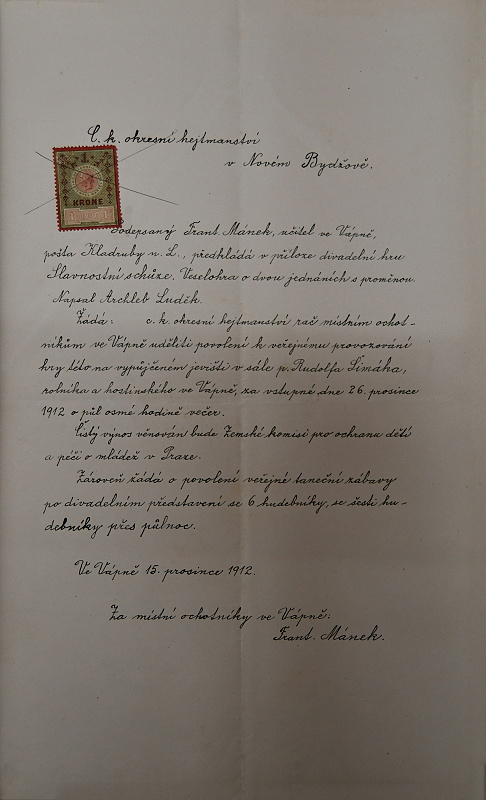 C. k. okresní hejtmanství
v Novém Bydžově.
1
KRONE
Podepsaný Frant. Mánek, učitel ve Vápně,
pošta Kladruby n. L., předkládá v příloze divadelní hru
Slavnostní schůze. Veselohra o dvou jednáních s proměnou.
Napsal Archleb Luděk.
Žádá: c. k. okresní hejtmanství rač místním ochot-
níkům ve Vápně uděliti povolení k veřejnému provozování
hry této na vypůjčeném jevišti v sále p. Rudolfa Šimáha,
rolníka a hostinského ve Vápně, za vstupné dne 26. prosince
1912 o půl osmé hodině večer.
Čistý výnos věnován bude Zemské komisi pro ochranu dětí
a péči o mládež v Praze.
Zároveň žádá o povolení veřejné taneční zábavy
po divadelním představení se 6 hudebníky, se šesti hu-
debníky přes půlnoc.
Ve Vápně 15. prosince 1912.
Za místní ochotníky ve Vápně:
Frant. Mánek.